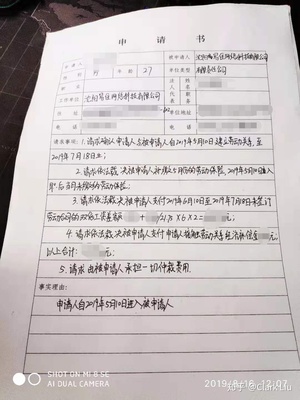 申 请 书
申请人 被申请人 沈阳易佳网络科技有限公司
性别 年龄 27 单位性质 有限责任公司
工作单位 沈阳易佳网络科技有限公司
住址 单位地址
电话 电话
请求事项：1. 请求确认申请人与被申请人自2019年5月10日建立劳动关系，至
2019年7月18日止；
2. 请求依法裁决被申请人补缴之5月份的劳动保险，2019年5月10日入
职后当月未缴纳的劳动保险；
3. 请求依法裁决被申请人支付2019年6月10日至2019年7月18日未签订
劳动合同的双倍工资差额
4. 请求依法裁决被申请人支付申请人解除劳动关系经济补偿金 元；
以上合计： 元；
5. 请求由被申请人承担一切仲裁费用.
事实理由：
申请人自2019年5月10日进入被申请人
SHOT ON MI 8 SE
AI DUAL CAMERA
2019-8-16 12:07
知乎 @Clark Liu